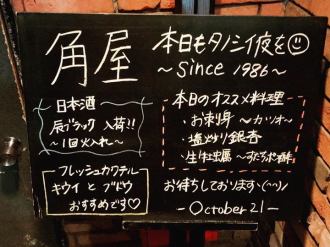 角屋
本日もタノシイ夜を☺
~Since 1986~
日本酒
辰ブラック 入荷!!
~1回火入れ~
フレッシュカクテル
キウイ と ブドウ
おすすめです♡
本日のオススメ料理
・お刺身 ~カツオ~
・塩炒り銀杏
・生牡蠣 ~すだちポン酢
お待ちしております
-October 21-